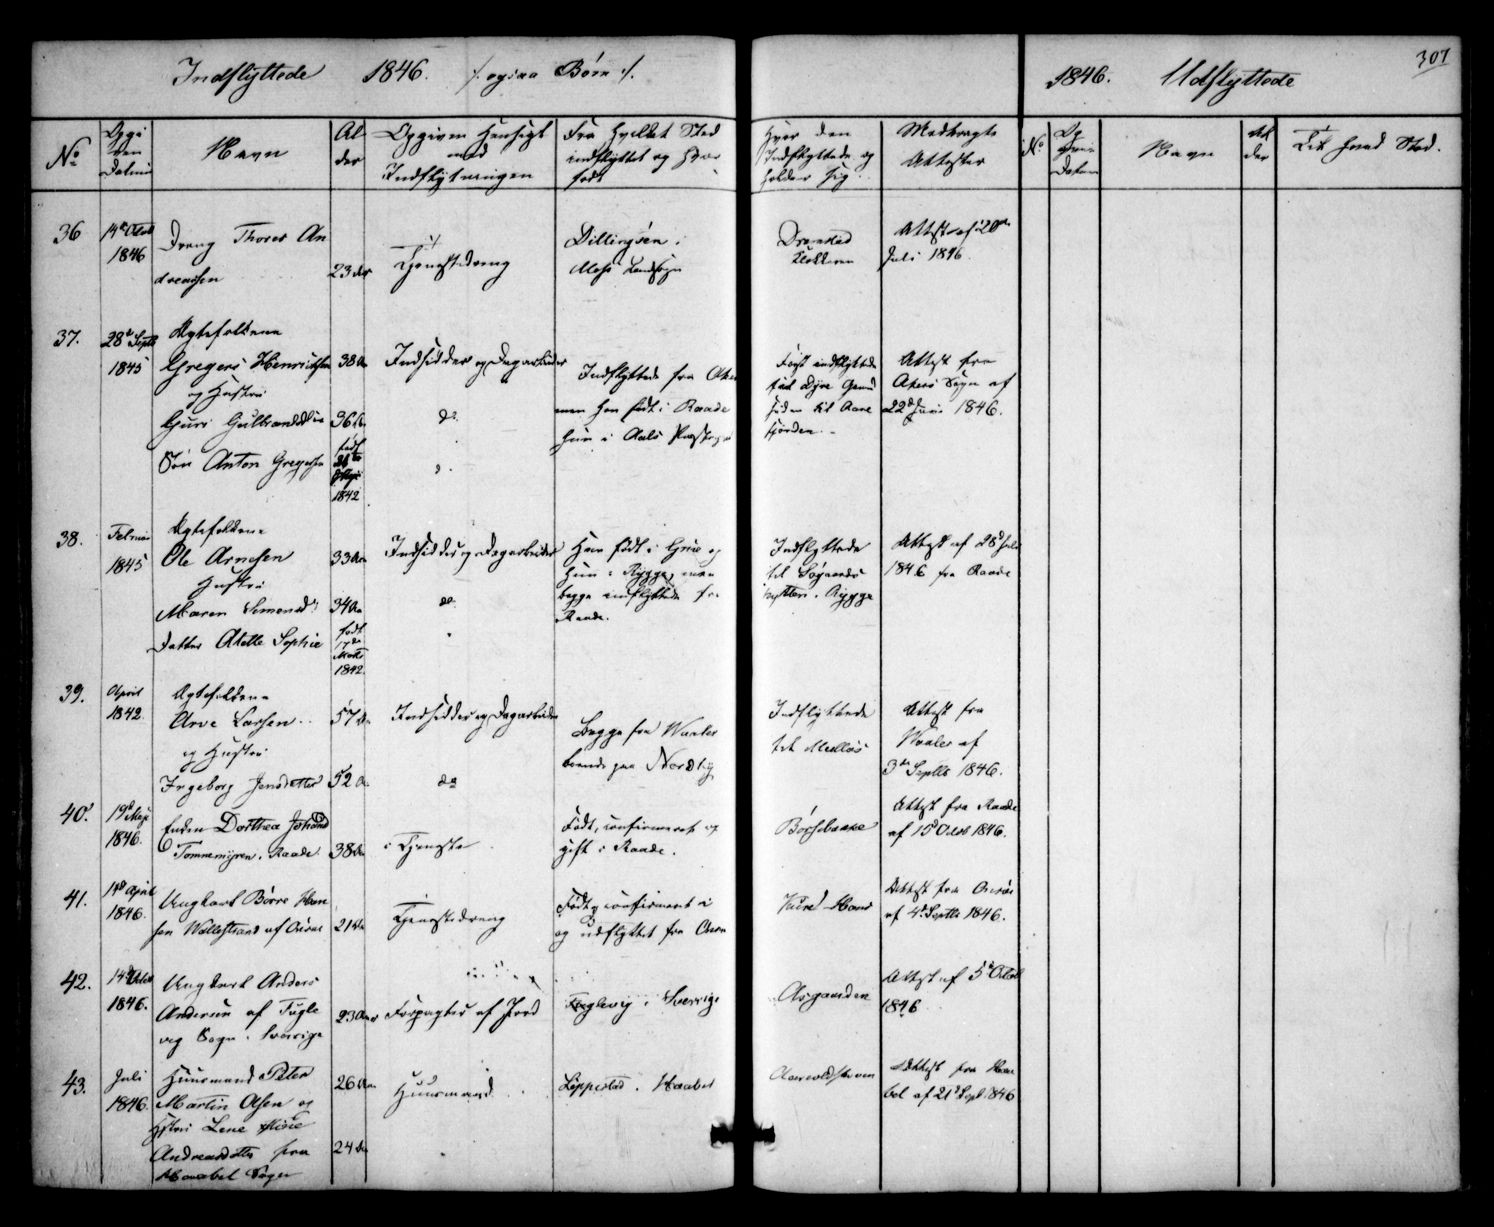 307
Indflyttede 1846. Børn
1846. Udflyttede
No
Opgivnen Datum
Navn
Alder
Opgiven Hensigt med Indflytningen
Fra hvilket Sted indflyttet og hvor født
Hvor den Indflyttede opholder sig
Medbragte Attester
No
Navn
Alder
Til hvad Sted.
36
14de Octob 1846
Dreng Thores An
dreassen
23 Aar
Tjenestedreng
Dillingøen i
Moss Landsogn
Klokkeren
Attest af 20de
Juli 1846
37.
28d Septb 1845
Ægtefolkene
Gregers Henrichsen
og Hustru
Guri Gulbrandsd
Søn Anton Gregersen
38 Aa
36 Aa
født
1842
Indsidder og Dagarbeider
do
Indflyttede fra
men han født i Raade
hun i Aals Præstegj
Først indflyttede
siden til Aare
fjorden.
Attest fra
Akers Sogn af
22d Juni 1846.
38.
Februar 1845
Ægtefolkene
Ole Arnesen
Hustru
Maren Simensd
Datter Adette Sophie
33 Aar
34 Aa
født
17de
Marts
1842.
Indsidder og Dagarbeider
do
Han født i og
hun i Rygge, men
begge indflyttede fra
Raade.
Indflyttede
til
i Rygge
Attest af 28d Juli
1846 fra Raade
39.
April 1842
Ægtefolkene
Arve Larsen
og Hustru
Ingeborg Jensdatter
57 Aa
52 Aa
Indsidder og Dagarbeider
do
Begge fra Waaler
boende paa Nordby
Indflyttede
til Melløs
Attest fra
Waaler af
3de Septbr 1846.
40.
19d Maji 1846.
Enken Dorthea Johansd
Tommemyren, Raade
38 Aa
i Tjeneste
Født, confirmeret og
gift i Raade.
Børsebakke
Attest fra Raade
af 15d Octob 1846.
41.
14d April 1846.
Ungkarl Børre Han
sen Wallestrand af Onsøe
21 Aa
Tjenestedreng
Født, confirmeret i
og udflyttet fra Onsø
Attest fra Onsøe
af 4d Septbr 1846.
42.
14d Octob 1846.
Ungkarl Anders
Andersen af Fugle
vig Sogn i Sverrige
23 Aar
Forpagter af Jord
Fuglevig i Sverrige
Attest af 5d Octob
1846
43.
Juli 1846.
Huusmand Peter
Martin Olsen og
Hustru Lene Marie
Andreasdatter fra
Haabøl Sogn
26 Aar
24 Aa
Huusmand
Løpperstad i Haabøl
Attest fra Haa
bøl af 21d Sept. 1846